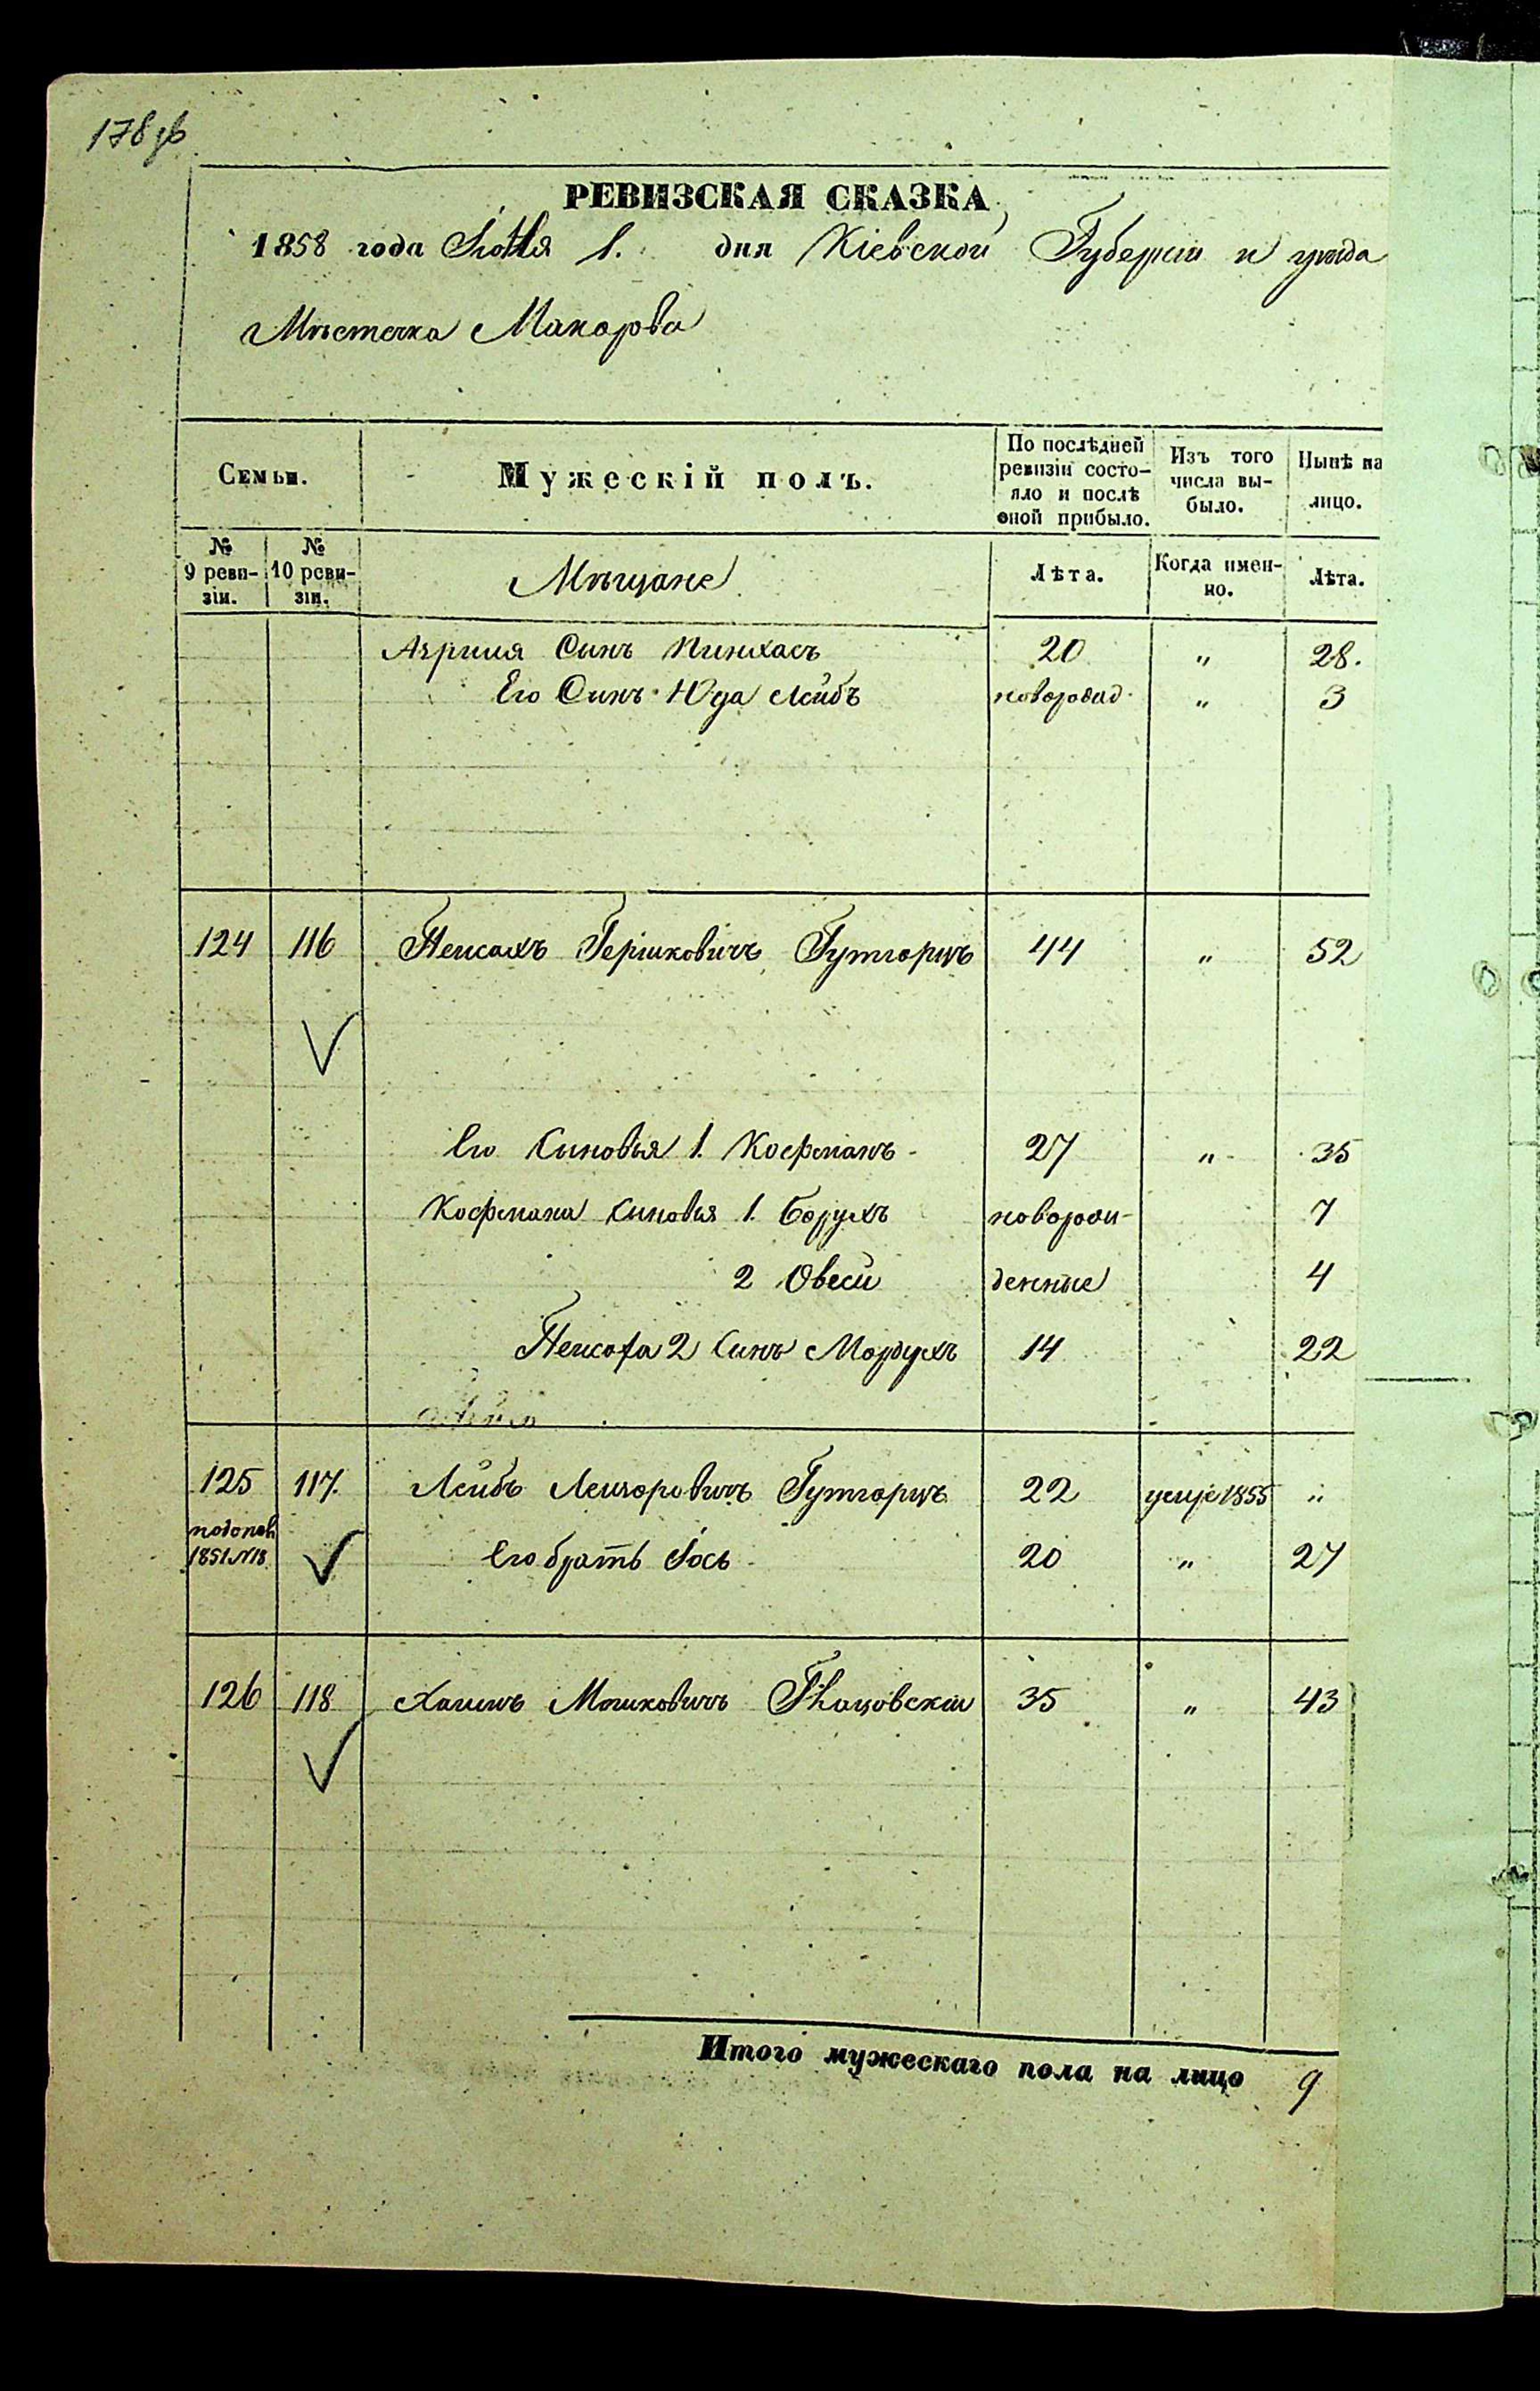 178 об
РЕВИЗСКАЯ СКАЗКА
1858 года Іюня 1. дня Кіевской Губерніи и уезда
Мѣстечка Макарова
Семьи. Мужескій полъ. По послѣдней ревизіи состояло и послѣ оной прибыло. Изъ того числа выбыло. Нынѣ на лицо.
№ 9 ревизіи. № 10 ревизіи. Мѣщане Лѣта. Когда именно. Лѣта.
Азріиля Синъ Пинхасъ 20 " 28.
Его Синъ Юда Лейбъ новорожд. " 3
124 116 Пейсахъ Гершковичъ Гутгарцъ 44 " 52
Его Синовья 1. Кофманъ 27 " 35
Кофмана Синовья 1. Борухъ новорож- 7
2 Овсей денные 4
Пейсаха 2 Синъ Мордухъ 14 22
125 117. Лейбъ Лейзоровичъ Гутгарцъ 22 умре 1855 "
1851 №18 Его братъ Іось 20 " 27
126 118 Хаимъ Мошковичъ 35 " 43
Итого мужескаго пола на лицо 9